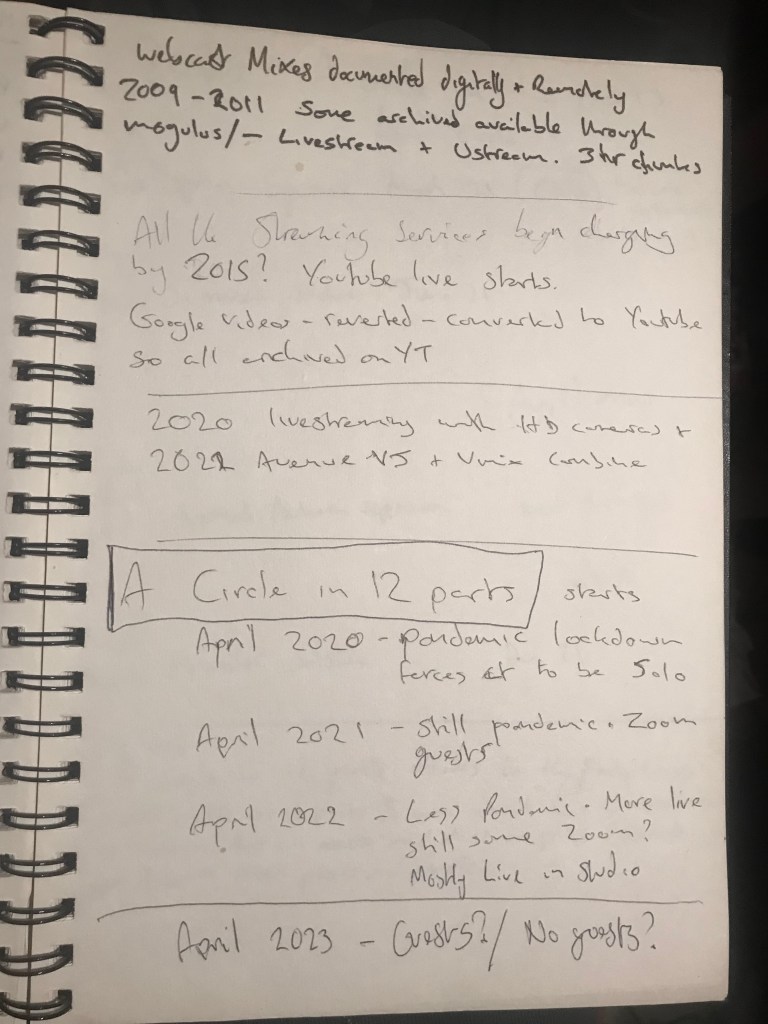 Webcast Mixes documented digitally + Remotely
2009 - 2011 Some archived available through
mogulus/- Livestream + Ustream. 3hr chunks
All the Streaming Services begin charging
by 2015? Youtube live starts.
Google videos - reverted - converted to Youtube
so all archived on YT
2020 livestreaming with HD cameras +
2021 Avenue VJ + Vmix Combine
A Circle in 12 parts starts
April 2020 - pandemic lockdown
forces it to be Solo
April 2021 - Still pandemic. Zoom
guests
April 2022 - Less Pandemic. More live
still some Zoom?
Mostly Live in studio
April 2023 - Guests?/ No guests?